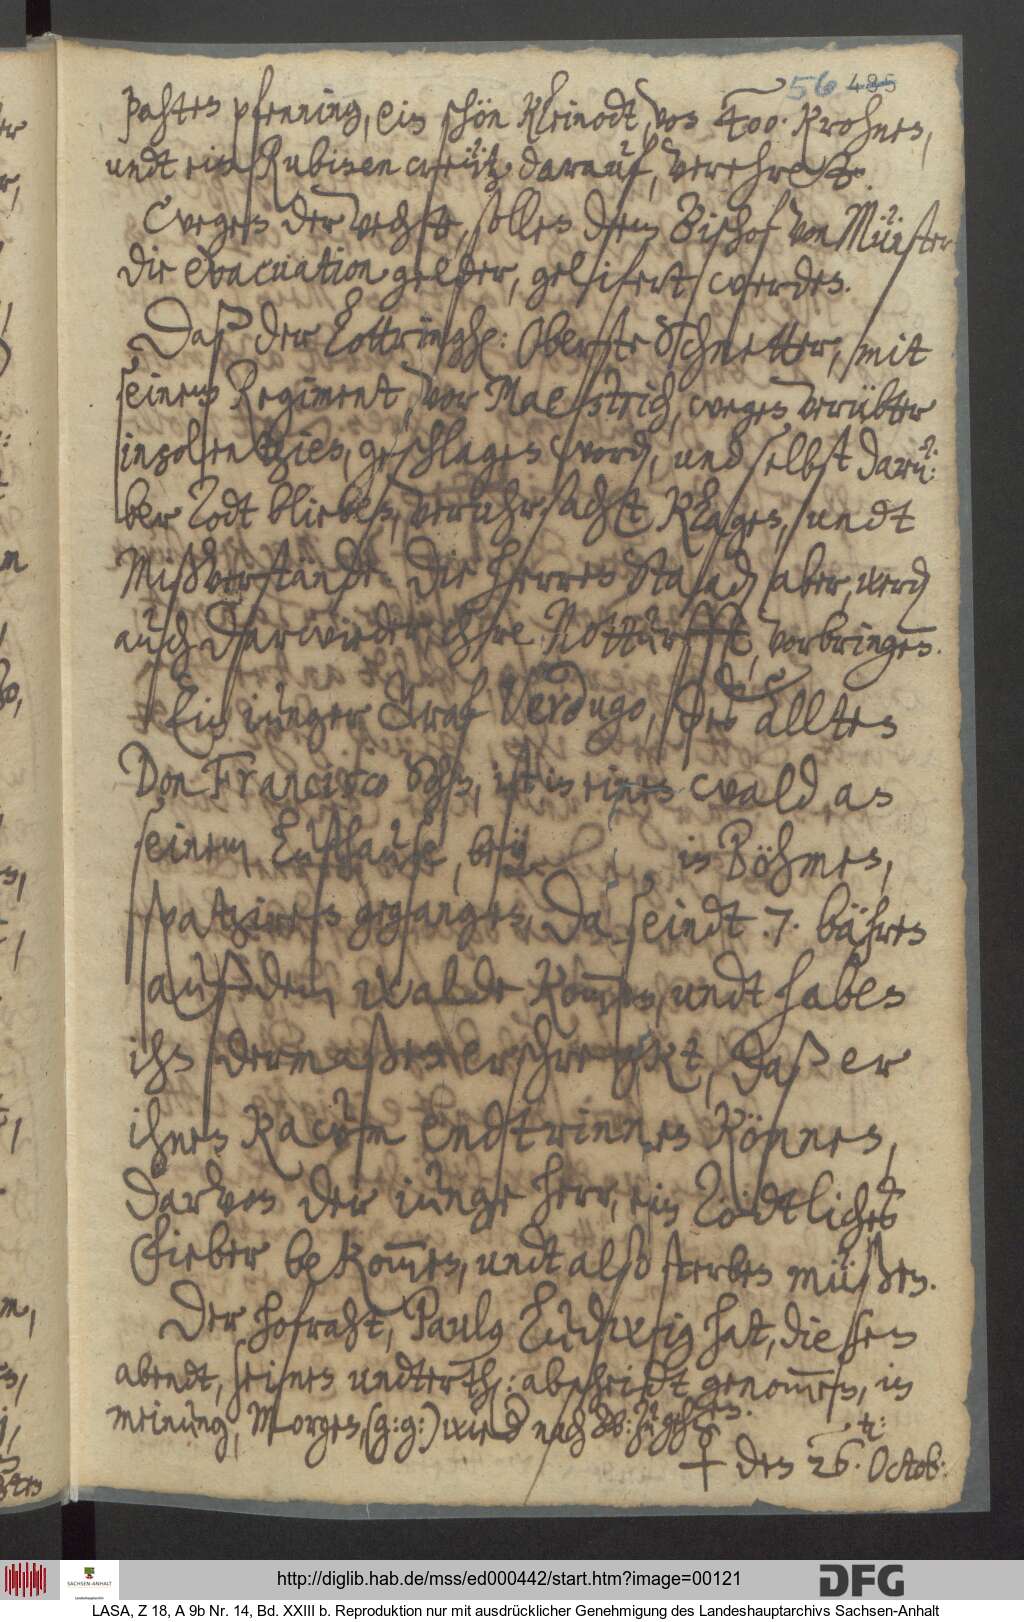 56 485
pahten pfenning, ein schön Kleinodt, von 400. Krohnen,
undt ein Rubinen creütz darauf, verehret.
Wegen der Vechte, sollen dem Bischof von Münster
die evacuation gelder, geliefert werden.
Daß der Lottringh: Oberste Schnetter, mit
seinem Regiment, vor Maestrich, wegen verübter
insolentzien, geschlagen word, und selbst darü:
ber Todt blieben, veruhrsacht Klagen, undt
Mißverstände. Die Herren Staad aber, werd
auch darwieder, ihre Notturfft, vorbringen.
Ein iunger Graf Verdugo, des allten
Don Francisco Sohn, ist in einem wald an
seinem Lusthause, bey in Böhmen,
spatziren gegangen, Da seindt 7. bähren
auß dem walde kommen, undt haben
ihn dermaßen erschreckt, daß er
ihnen kaum endtrinnen können,
Darvon der iunge herr, ein Tödtliches
Fieber bekommen, undt also sterben müßen.
Der hofraht, Paulus Ludwig hat, diesen
abendt, seinen undterth: abscheidt genommen, in
meinung, Morgen, (g: g:) wied nach zu gehen.
den 26. Octob:
http://diglib.hab.de/mss/ed000442/start.htm?image=00121
SACHSEN-ANHALT
DFG
LASA, Z 18, A 9b Nr. 14, Bd. XXIII b. Reproduktion nur mit ausdrücklicher Genehmigung des Landeshauptarchivs Sachsen-Anhalt